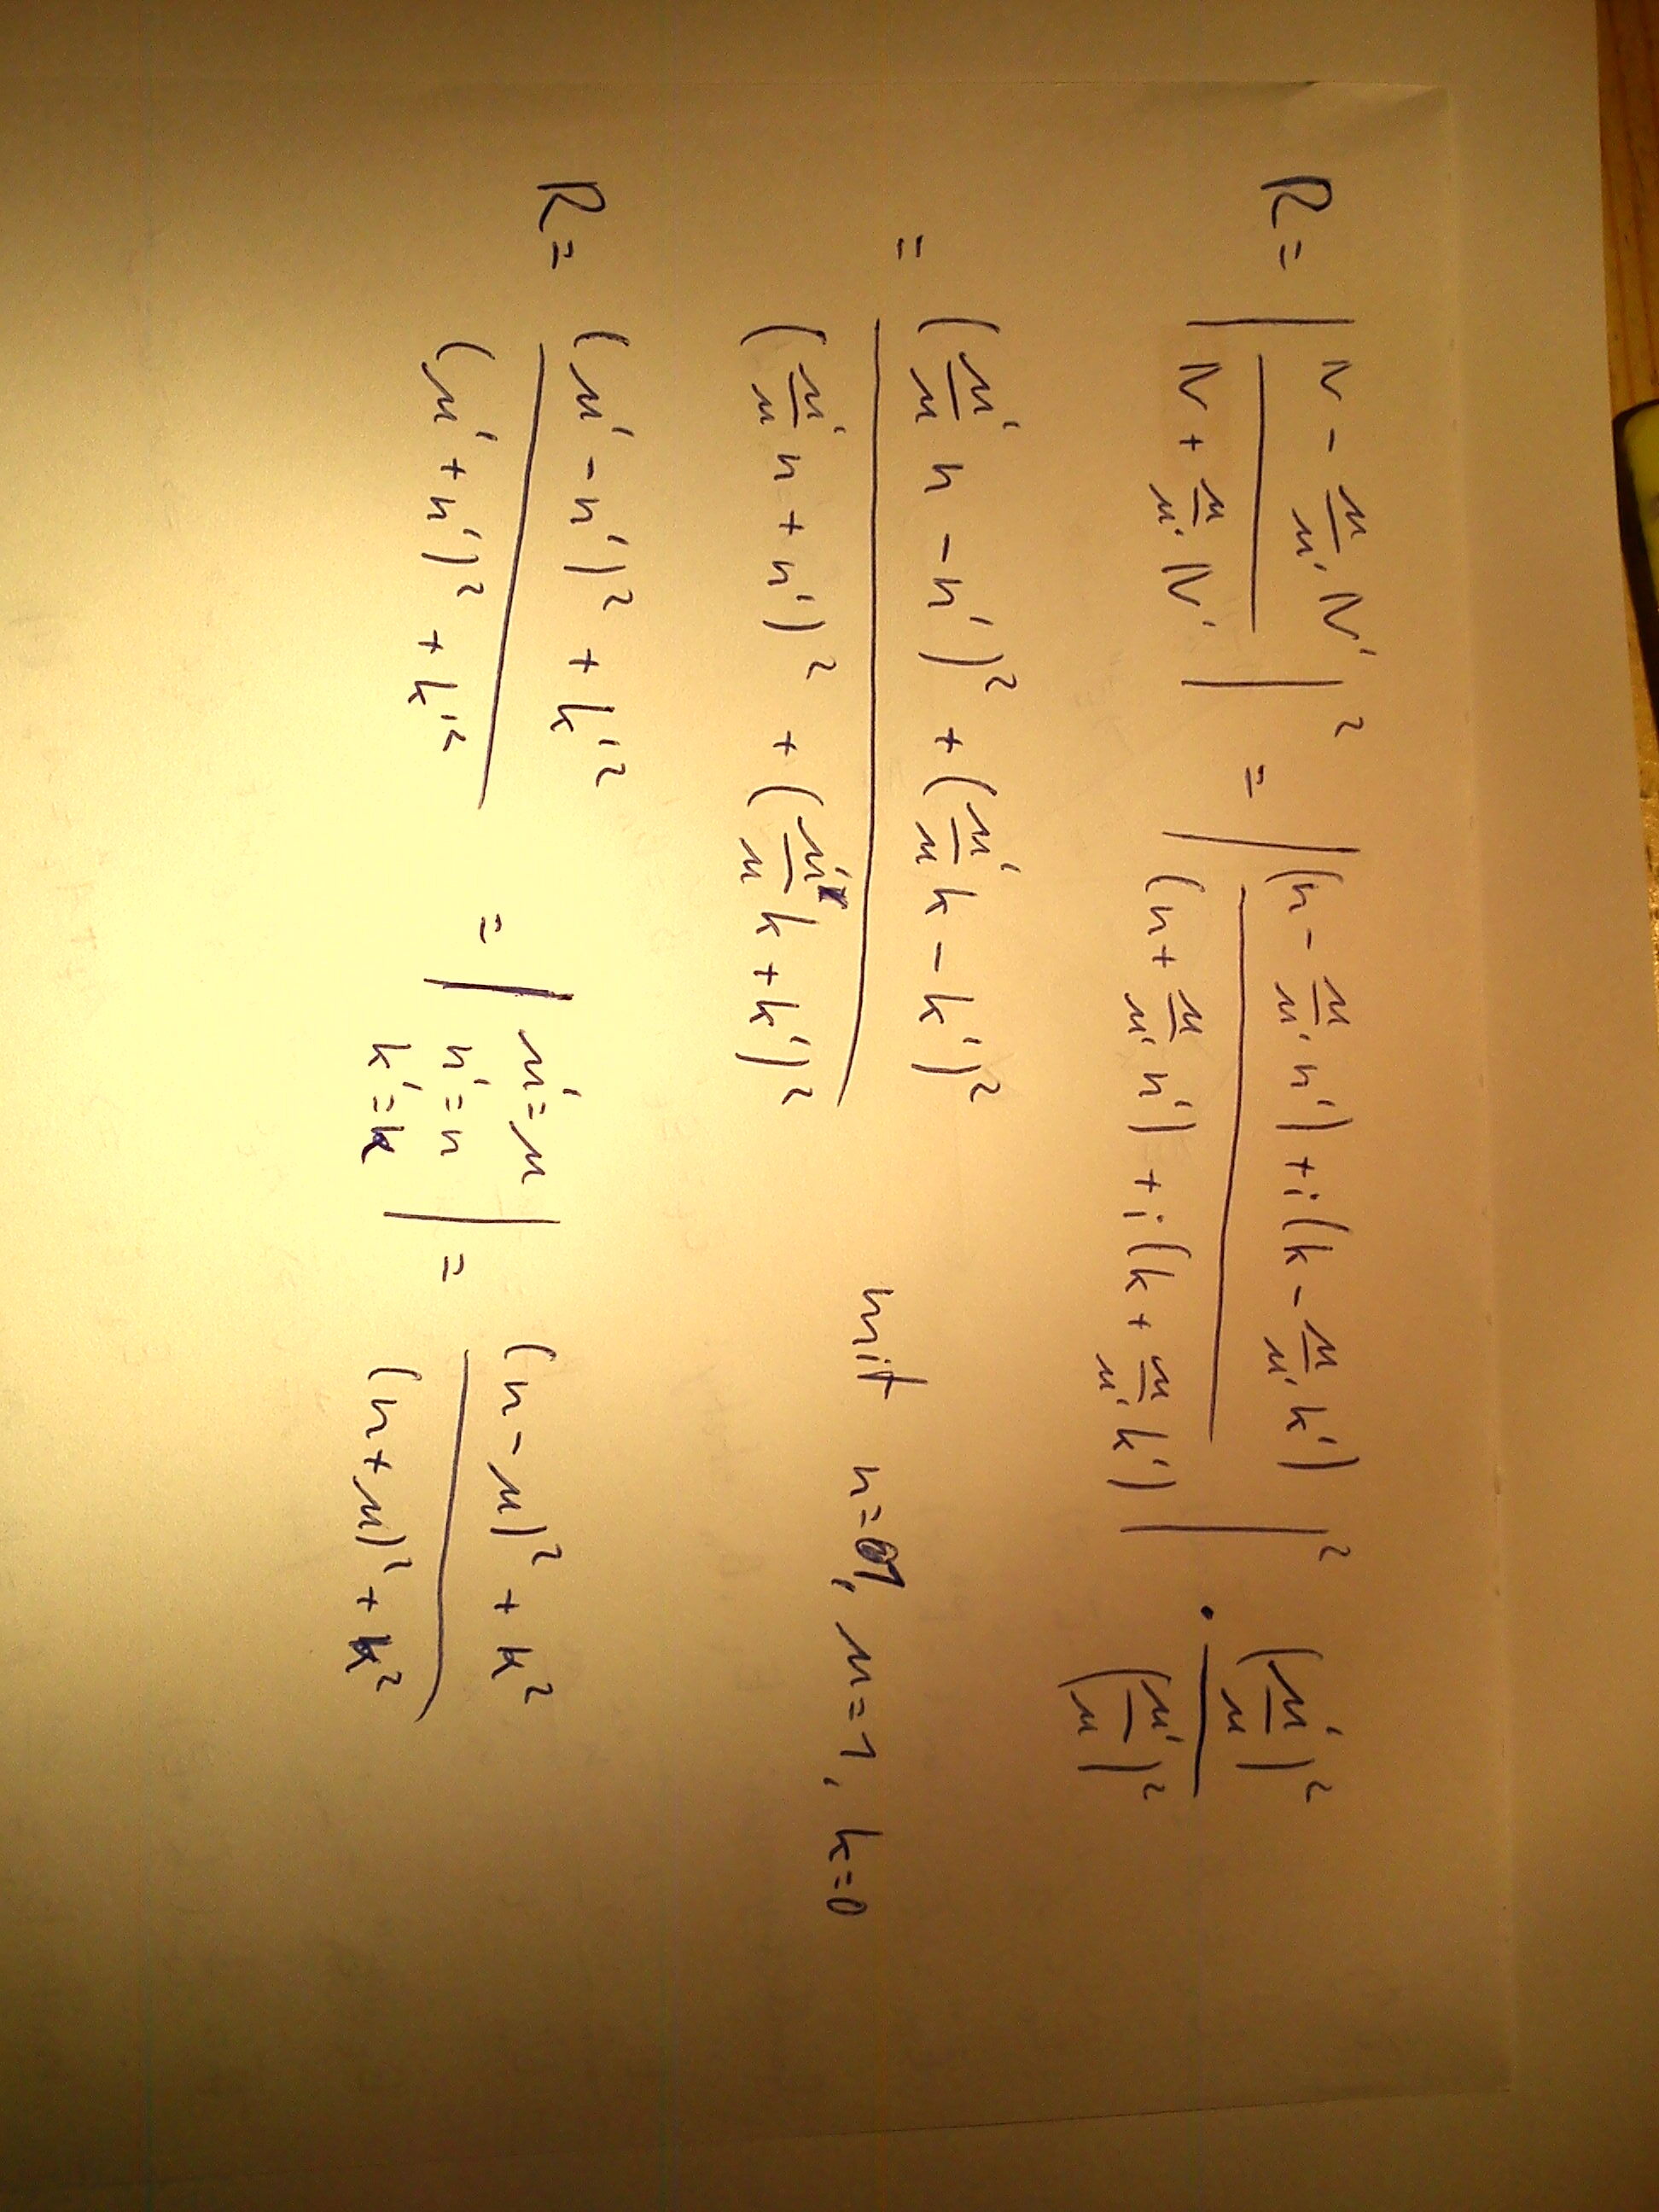 R = | (N - μ/μ' N') / (N + μ/μ' N') |² = | ((n - μ/μ' n') + i(k - μ/μ' k')) / ((n + μ/μ' n') + i(k + μ/μ' k')) |² · (μ'/μ)² / (μ'/μ)²
= ((μ'/μ n - n')² + (μ'/μ k - k')²) / ((μ'/μ n + n')² + (μ'/μ k + k')²) mit n=1, μ=1, k=0
R = ((μ' - n')² + k'²) / ((μ' + n')² + k'²) = | μ'=μ n'=n k'=k | = ((n - μ)² + k²) / ((n + μ)² + k²)